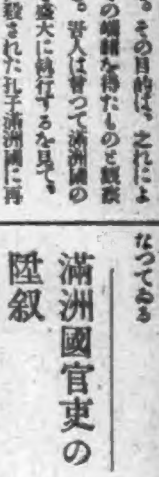 。その目的は、之れによ
の端緒を得たものと観度
。吾人は曾つて満洲國の
盛大に執行するを見て、
殺された孔子満洲國に再
なつてゐる
滿洲國官吏の
陞叙